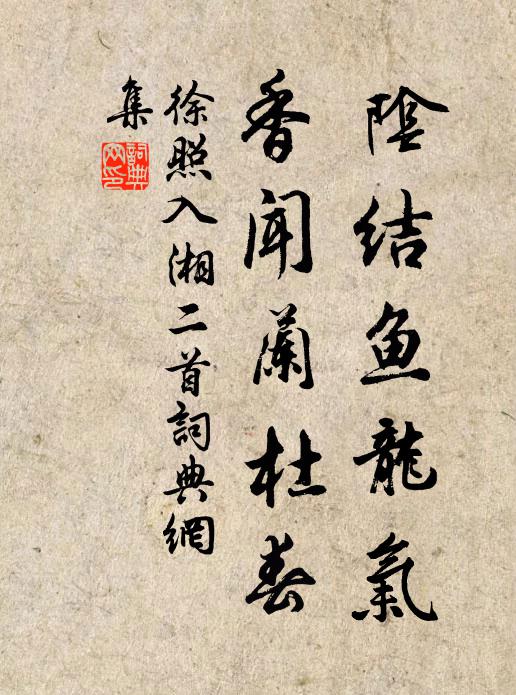 陰结鱼龍氣
香闻蘭杜春
徐照入湘二首詞典網
集
詞典
网印